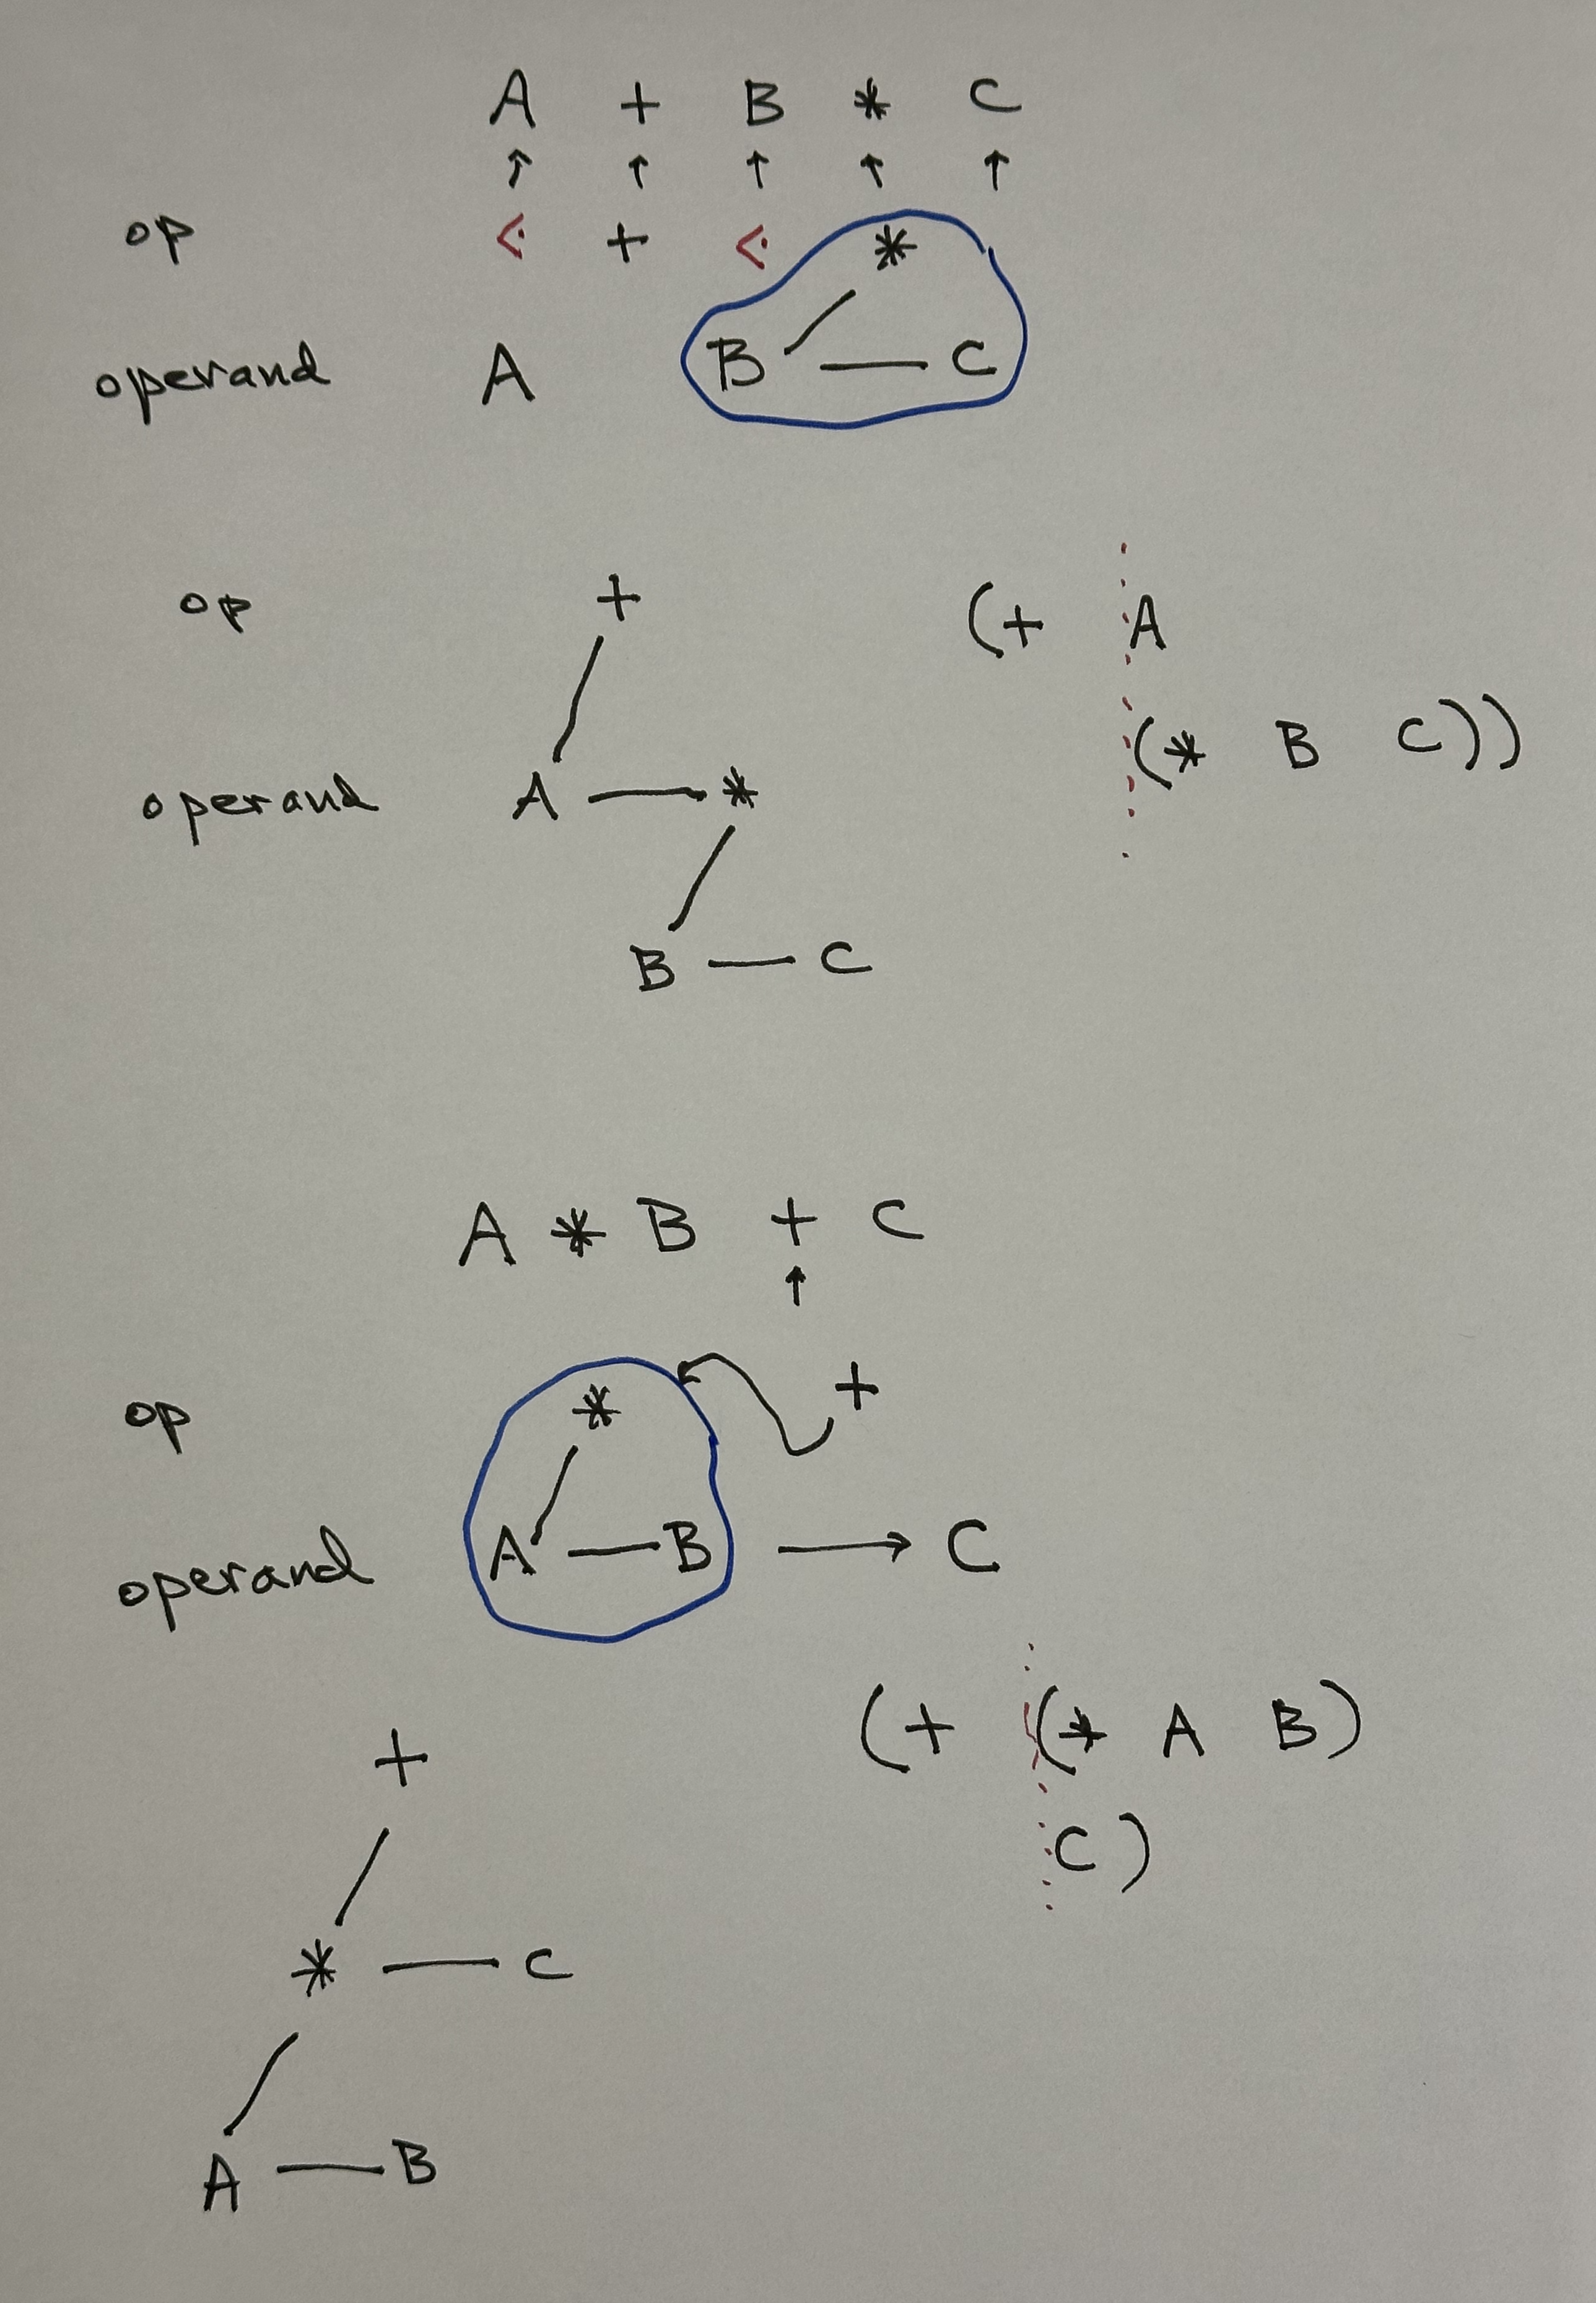 A + B * C
↑ ↑ ↑ ↑ ↑
op ⋖ + ⋖ *
operand A B — C
op +
(+ A
operand A — *
(* B C))
B — C
A * B + C
↑
op * +
operand A — B → C
+
(+ (* A B)
C)
* — C
A — B